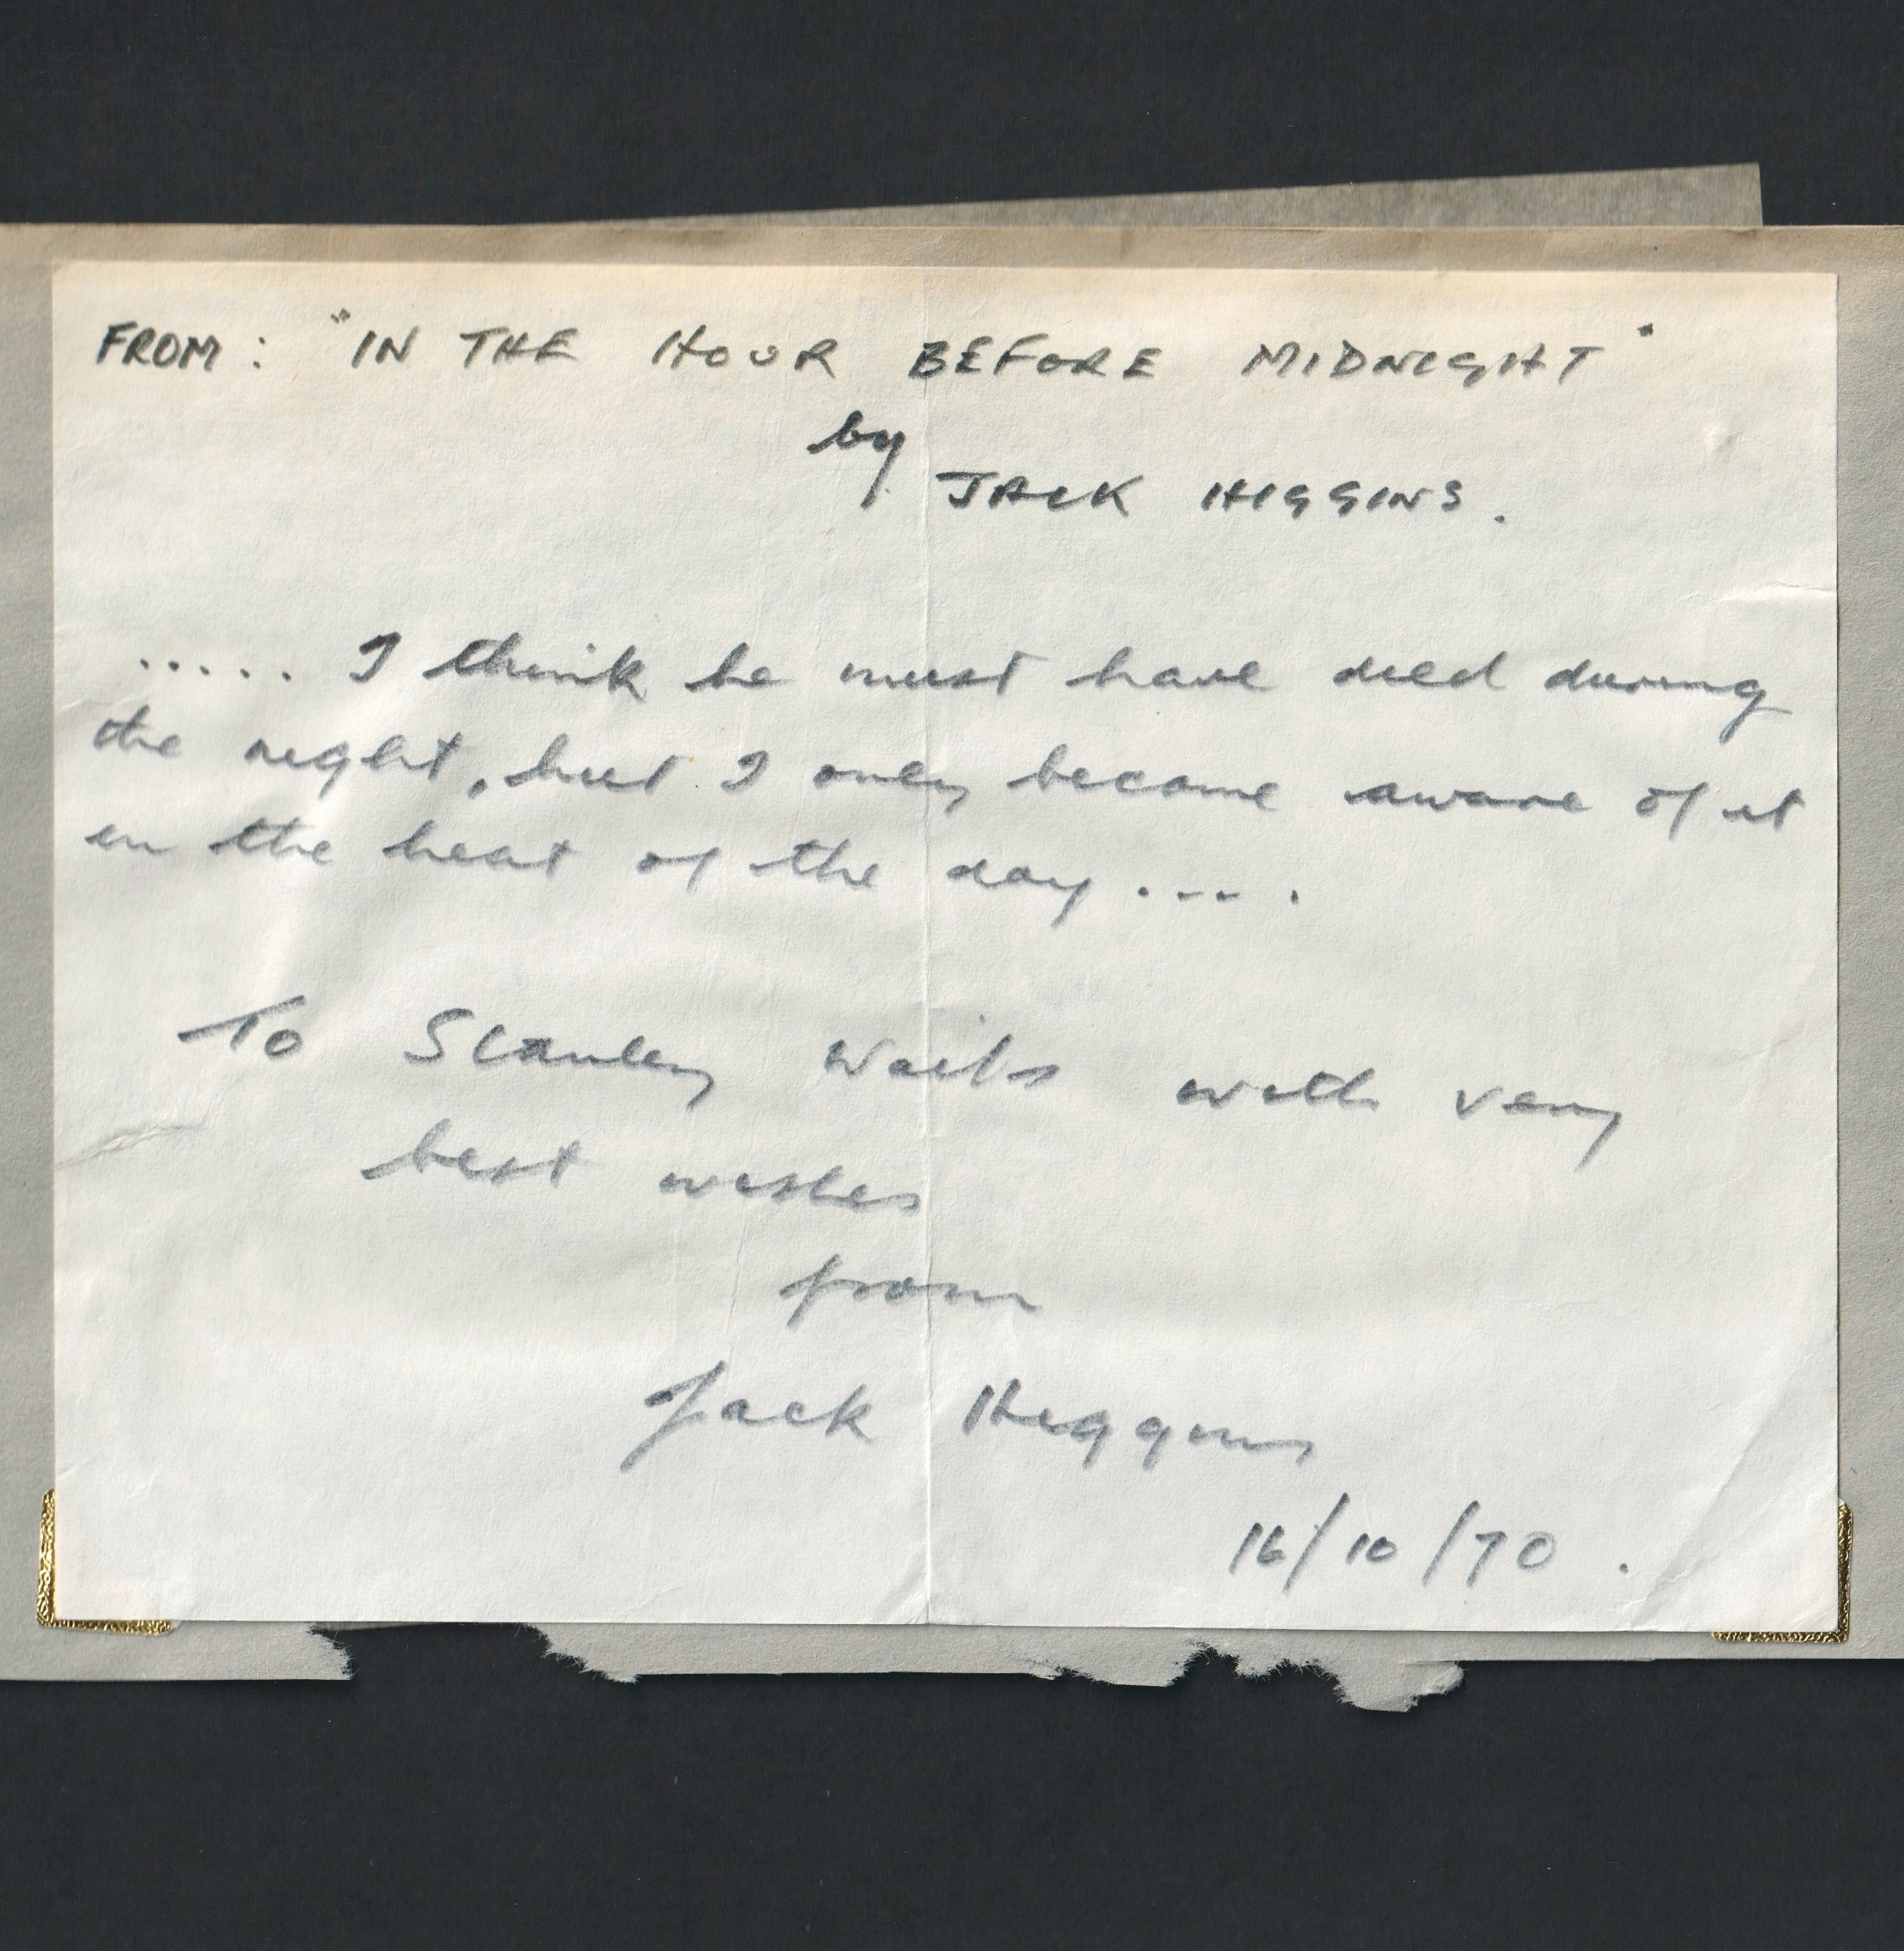 FROM: "IN THE HOUR BEFORE MIDNIGHT"
by
JACK HIGGINS.
..... I think he must have died during
the night, but I only became aware of it
in the heat of the day .....
To Stanley with very
best wishes
from
Jack Higgins
16/10/70.